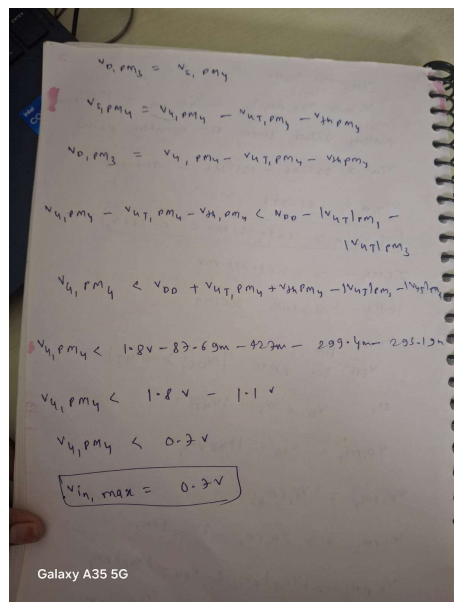 VD,PM3 = VS,PM4
VS,PM4 = VG,PM4 - VGT,PM4 - Vth PM4
VD,PM3 = VG,PM4 - VGT,PM4 - Vth PM4
VG,PM4 - VGT,PM4 - Vth,PM4 < VDD - |VGT|PM1 -
|VGT|PM3
VG,PM4 < VDD + VGT,PM4 + Vth PM4 - |VGT|PM1 - |VGT|PM3
VG,PM4 < 1.8V - 87.69m - 427m - 299.4m - 295.19m
VG,PM4 < 1.8 V - 1.1 V
VG,PM4 < 0.7 V
Vin, max = 0.7 V
Galaxy A35 5G